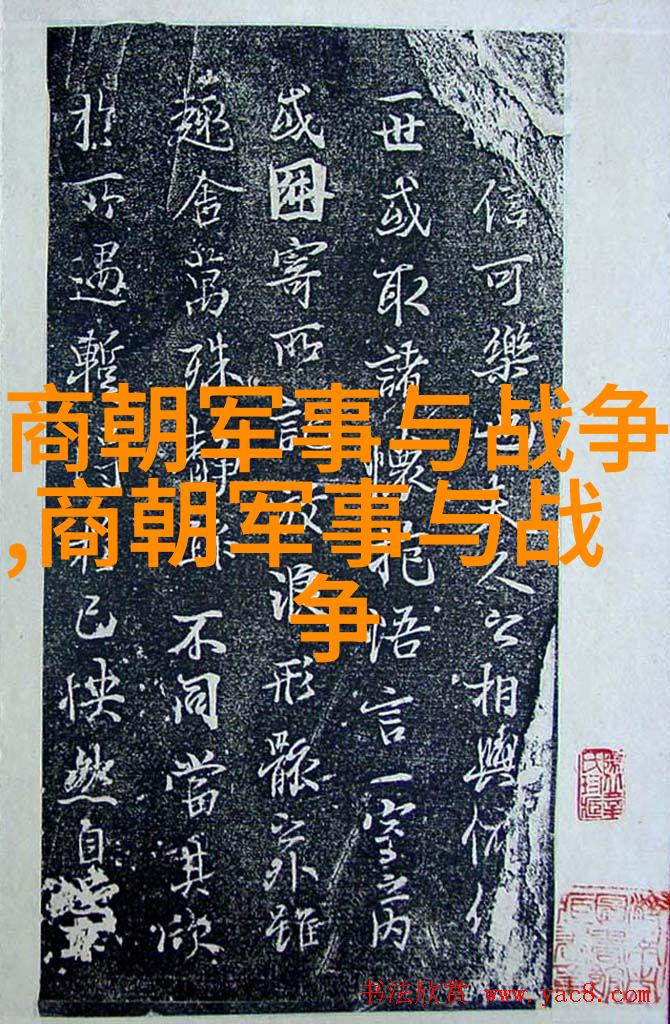 信可樂也夫人之相與俯仰
一世或取諸懷抱悟言一室之內
或因寄所託放浪形骸之外雖
趣舍萬殊靜躁不同當其欣
於所遇暫得於己快然自
商朝军事与战争
,商朝军事与战
争
书法欣赏 www.yac8.com